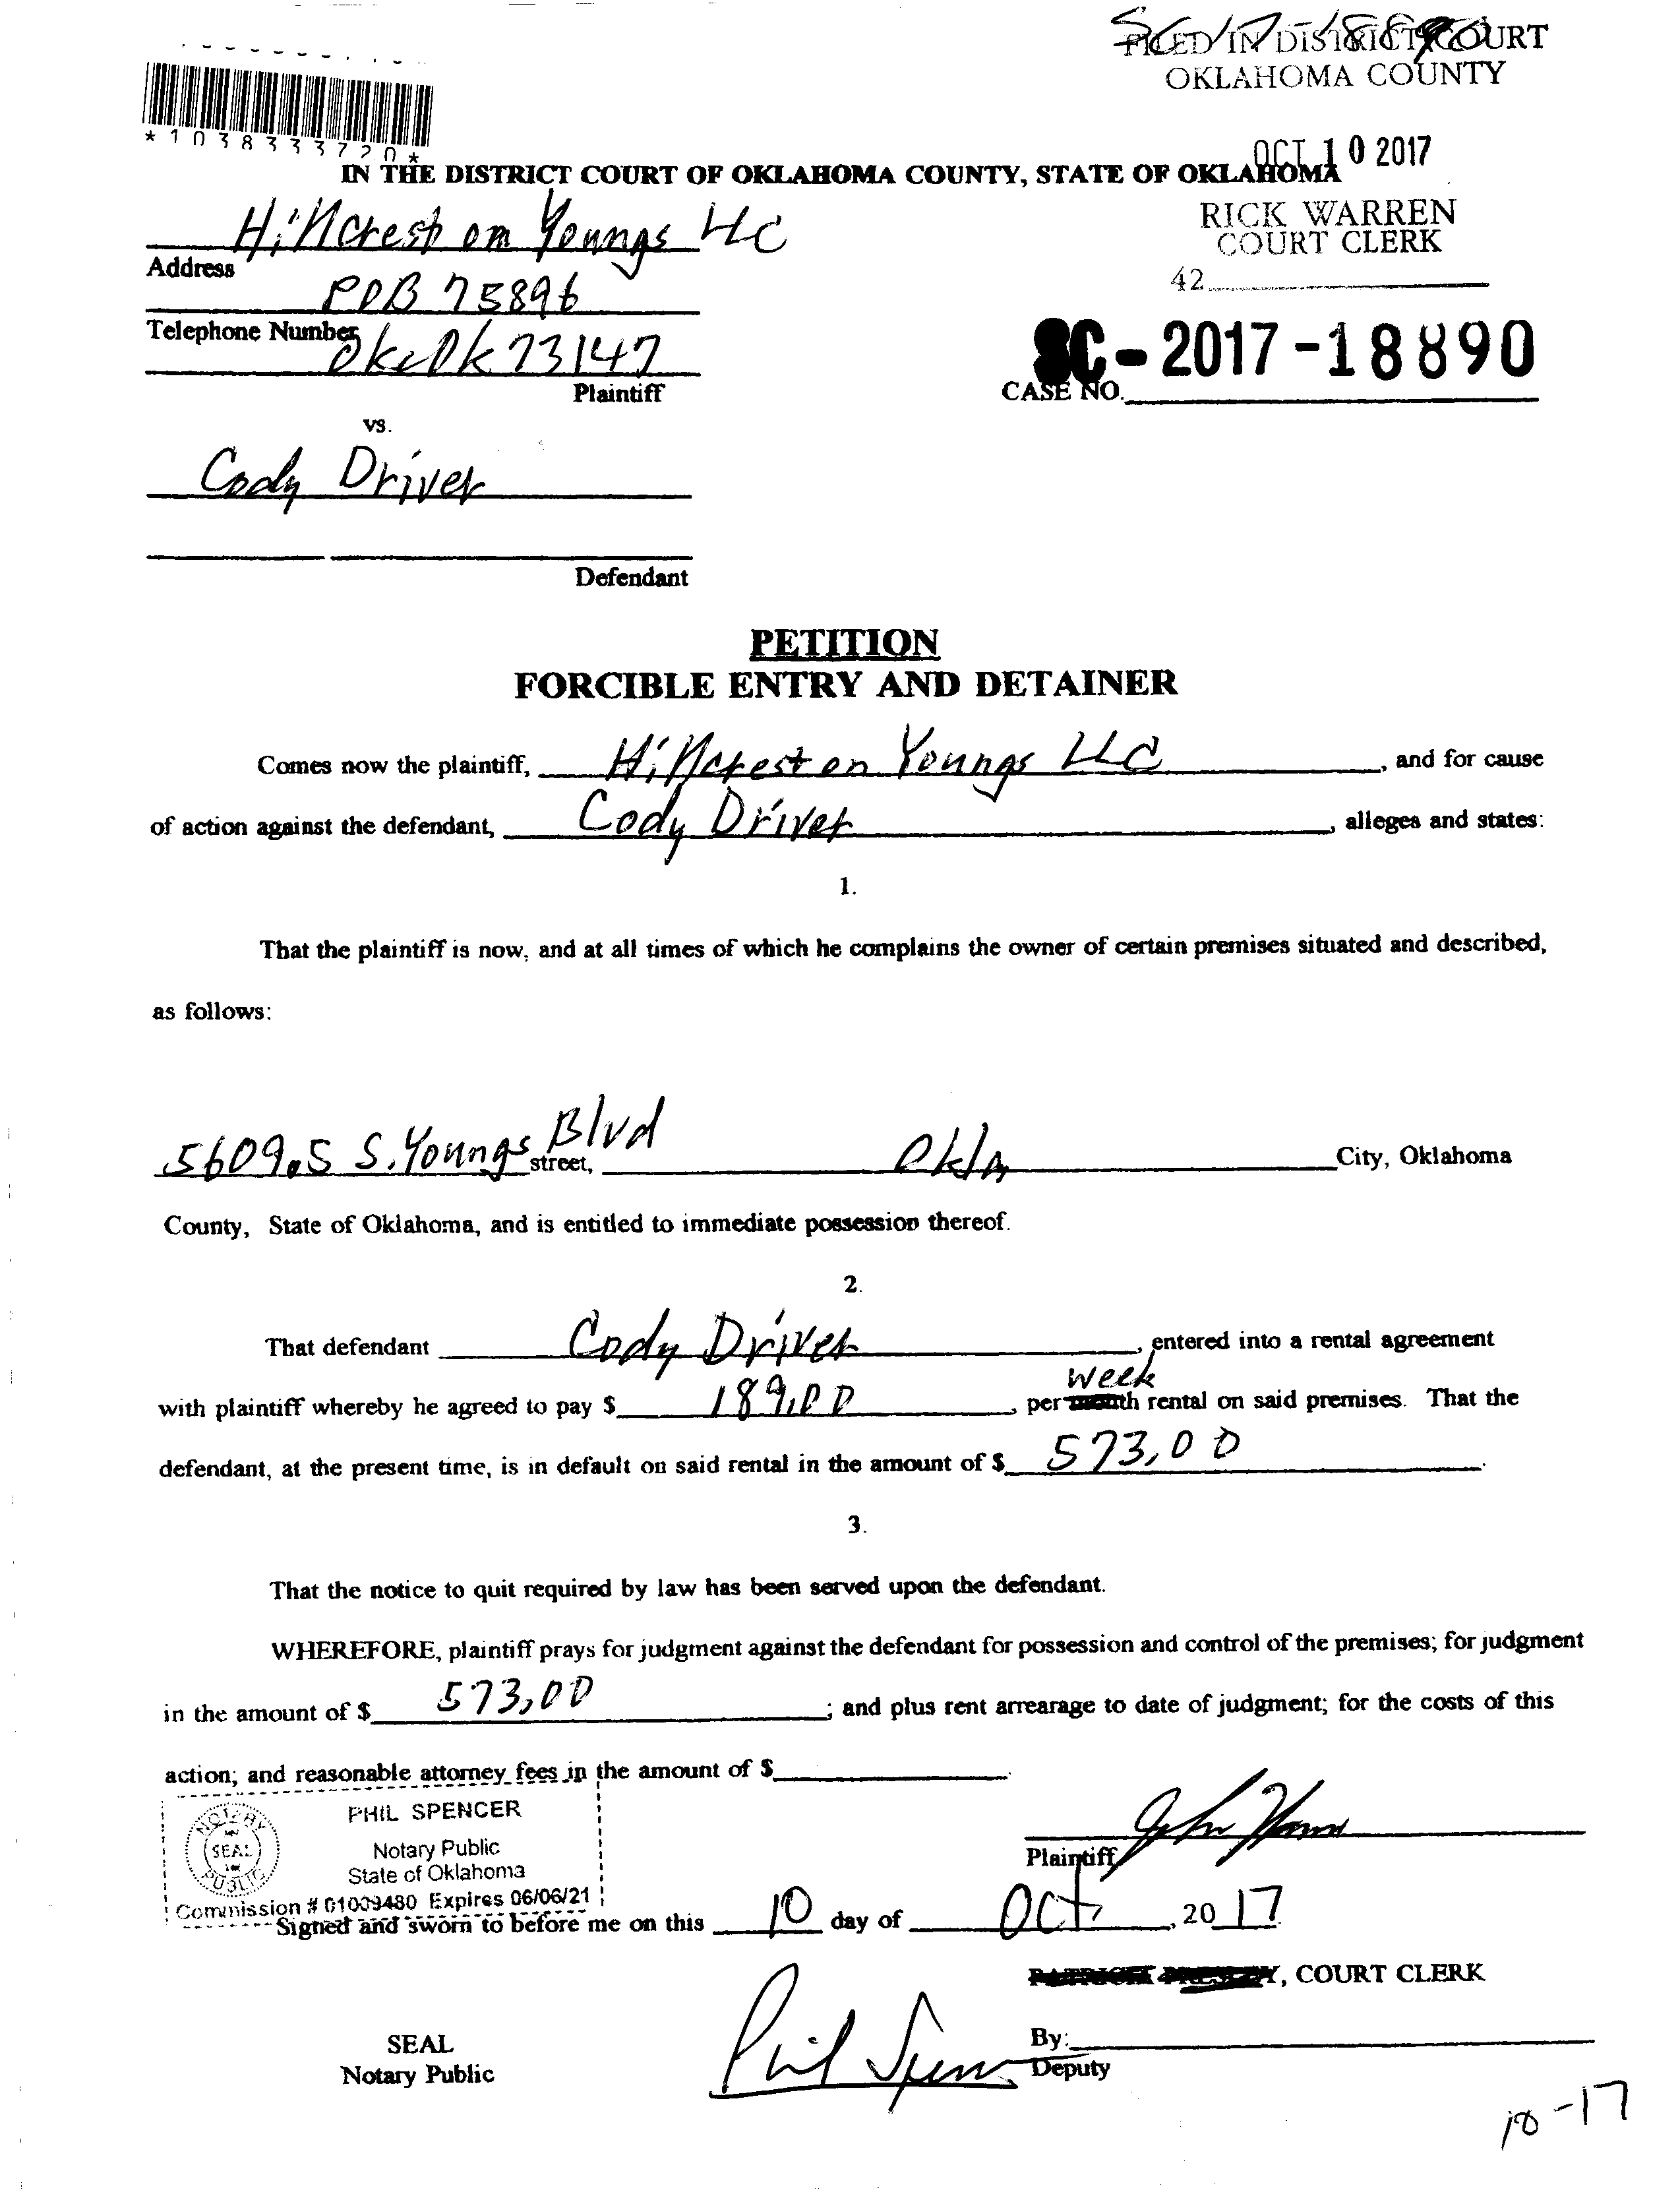 SC-17-18890
FILED IN DISTRICT COURT
OKLAHOMA COUNTY
*1038333720*
OCT 10 2017
IN THE DISTRICT COURT OF OKLAHOMA COUNTY, STATE OF OKLAHOMA
Hillcrest on Youngs LLC
RICK WARREN
COURT CLERK
Address
POB 75896
42
Telephone Number
Okc Ok 73147
SC-2017-18890
Plaintiff
CASE NO.
vs.
Cody Driver
Defendant
PETITION
FORCIBLE ENTRY AND DETAINER
Comes now the plaintiff, Hillcrest on Youngs LLC, and for cause
of action against the defendant, Cody Driver, alleges and states:
1.
That the plaintiff is now, and at all times of which he complains the owner of certain premises situated and described,
as follows:
5609.5 S. Youngs Blvd street, Okla City, Oklahoma
County, State of Oklahoma, and is entitled to immediate possession thereof.
2.
That defendant Cody Driver, entered into a rental agreement
week
with plaintiff whereby he agreed to pay $ 189.00, per month rental on said premises. That the
defendant, at the present time, is in default on said rental in the amount of $ 573,00.
3.
That the notice to quit required by law has been served upon the defendant.
WHEREFORE, plaintiff prays for judgment against the defendant for possession and control of the premises; for judgment
in the amount of $ 573,00; and plus rent arrearage to date of judgment; for the costs of this
action; and reasonable attorney fees in the amount of $.
NOTARY PUBLIC
SEAL
PHIL SPENCER
Notary Public
State of Oklahoma
Commission # 01009480 Expires 06/06/21
Plaintiff
Signed and sworn to before me on this 10 day of Oct, 2017.
PATRICIA PRESLEY, COURT CLERK
Phil Spencer
SEAL
Notary Public
By:
Deputy
10-17